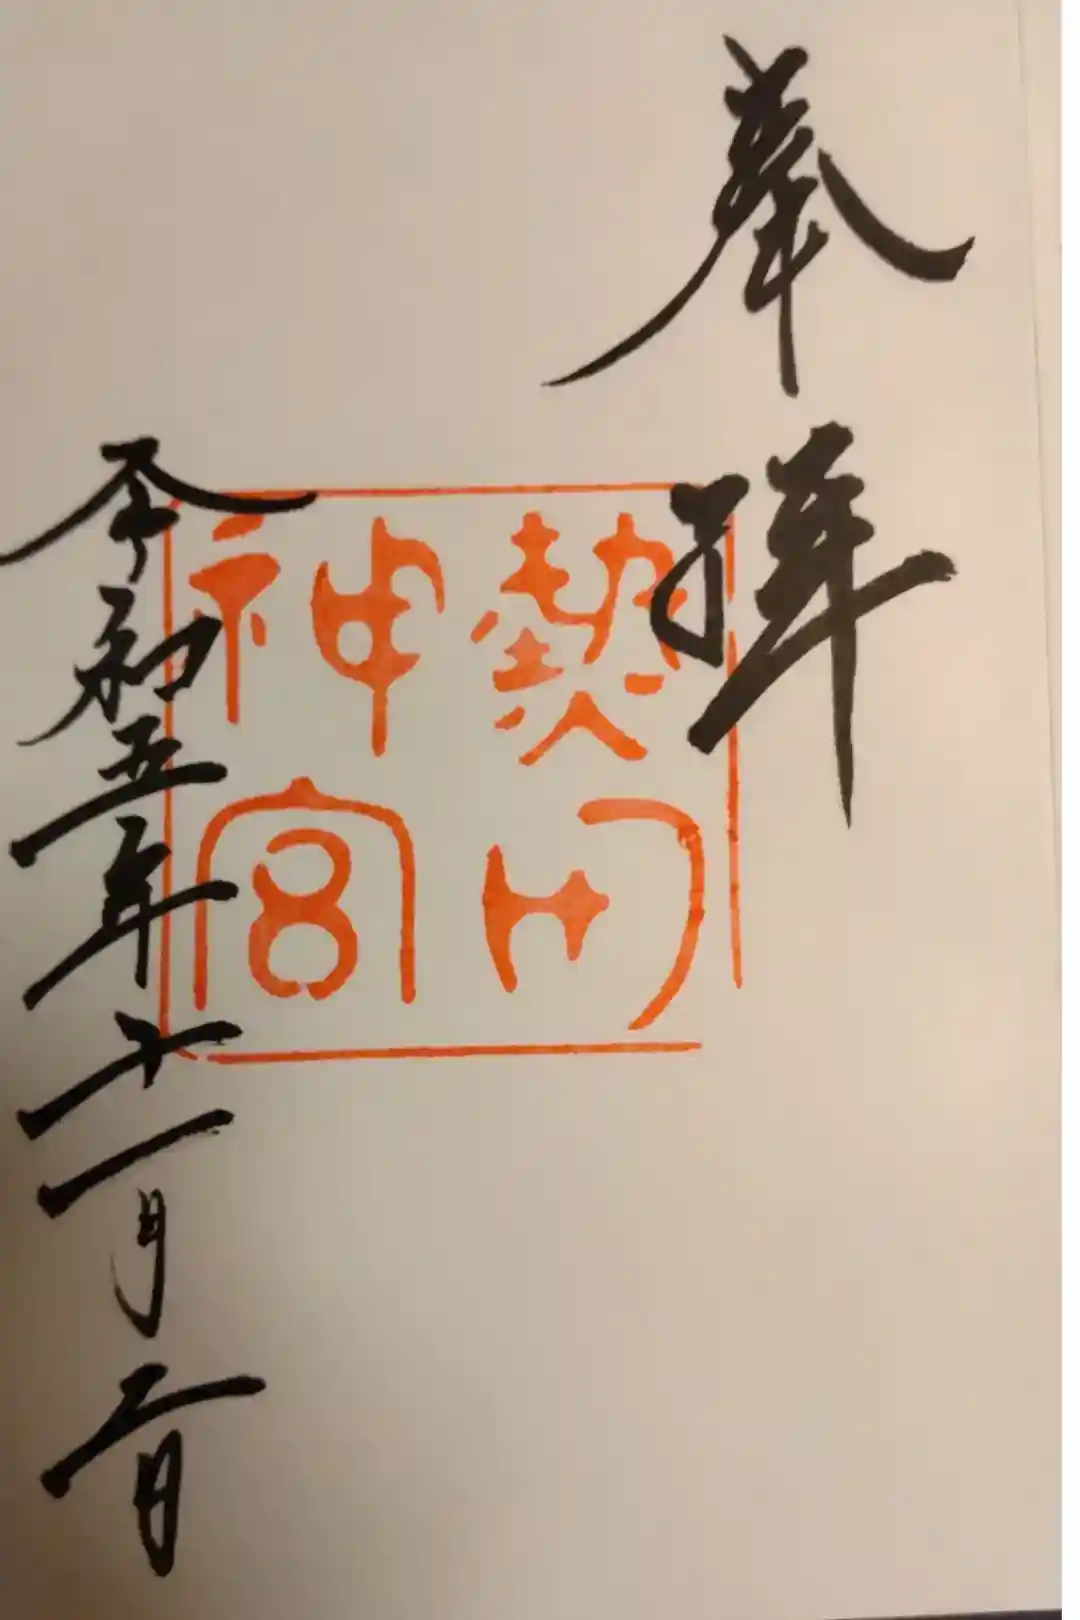 奉拝
熱田神宮
令和五年十一月二日